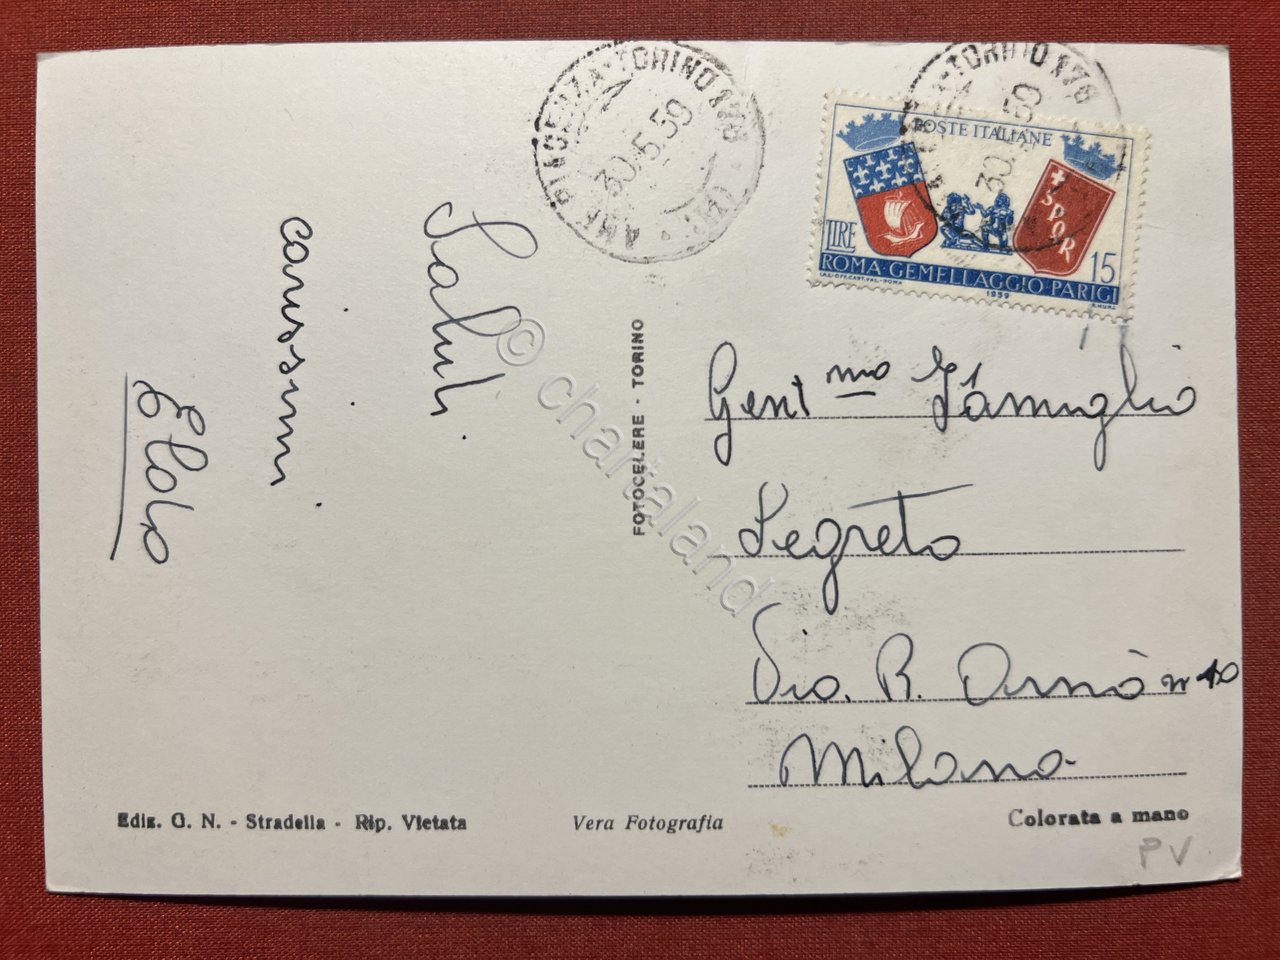 AMB. PIACENZA-TORINO 178
30.5.59
POSTE ITALIANE
SPQR
LIRE
15
ROMA·GEMELLAGGIO·PARIGI
1959
Saluti
carissimi
FOTOCELERE - TORINO
Gent.mo Famiglia
Segreto
Via. B. n 10
Milano
Ediz. G. N. - Stradella - Rip. Vietata
Vera Fotografia
Colorata a mano
PV
© chartaland